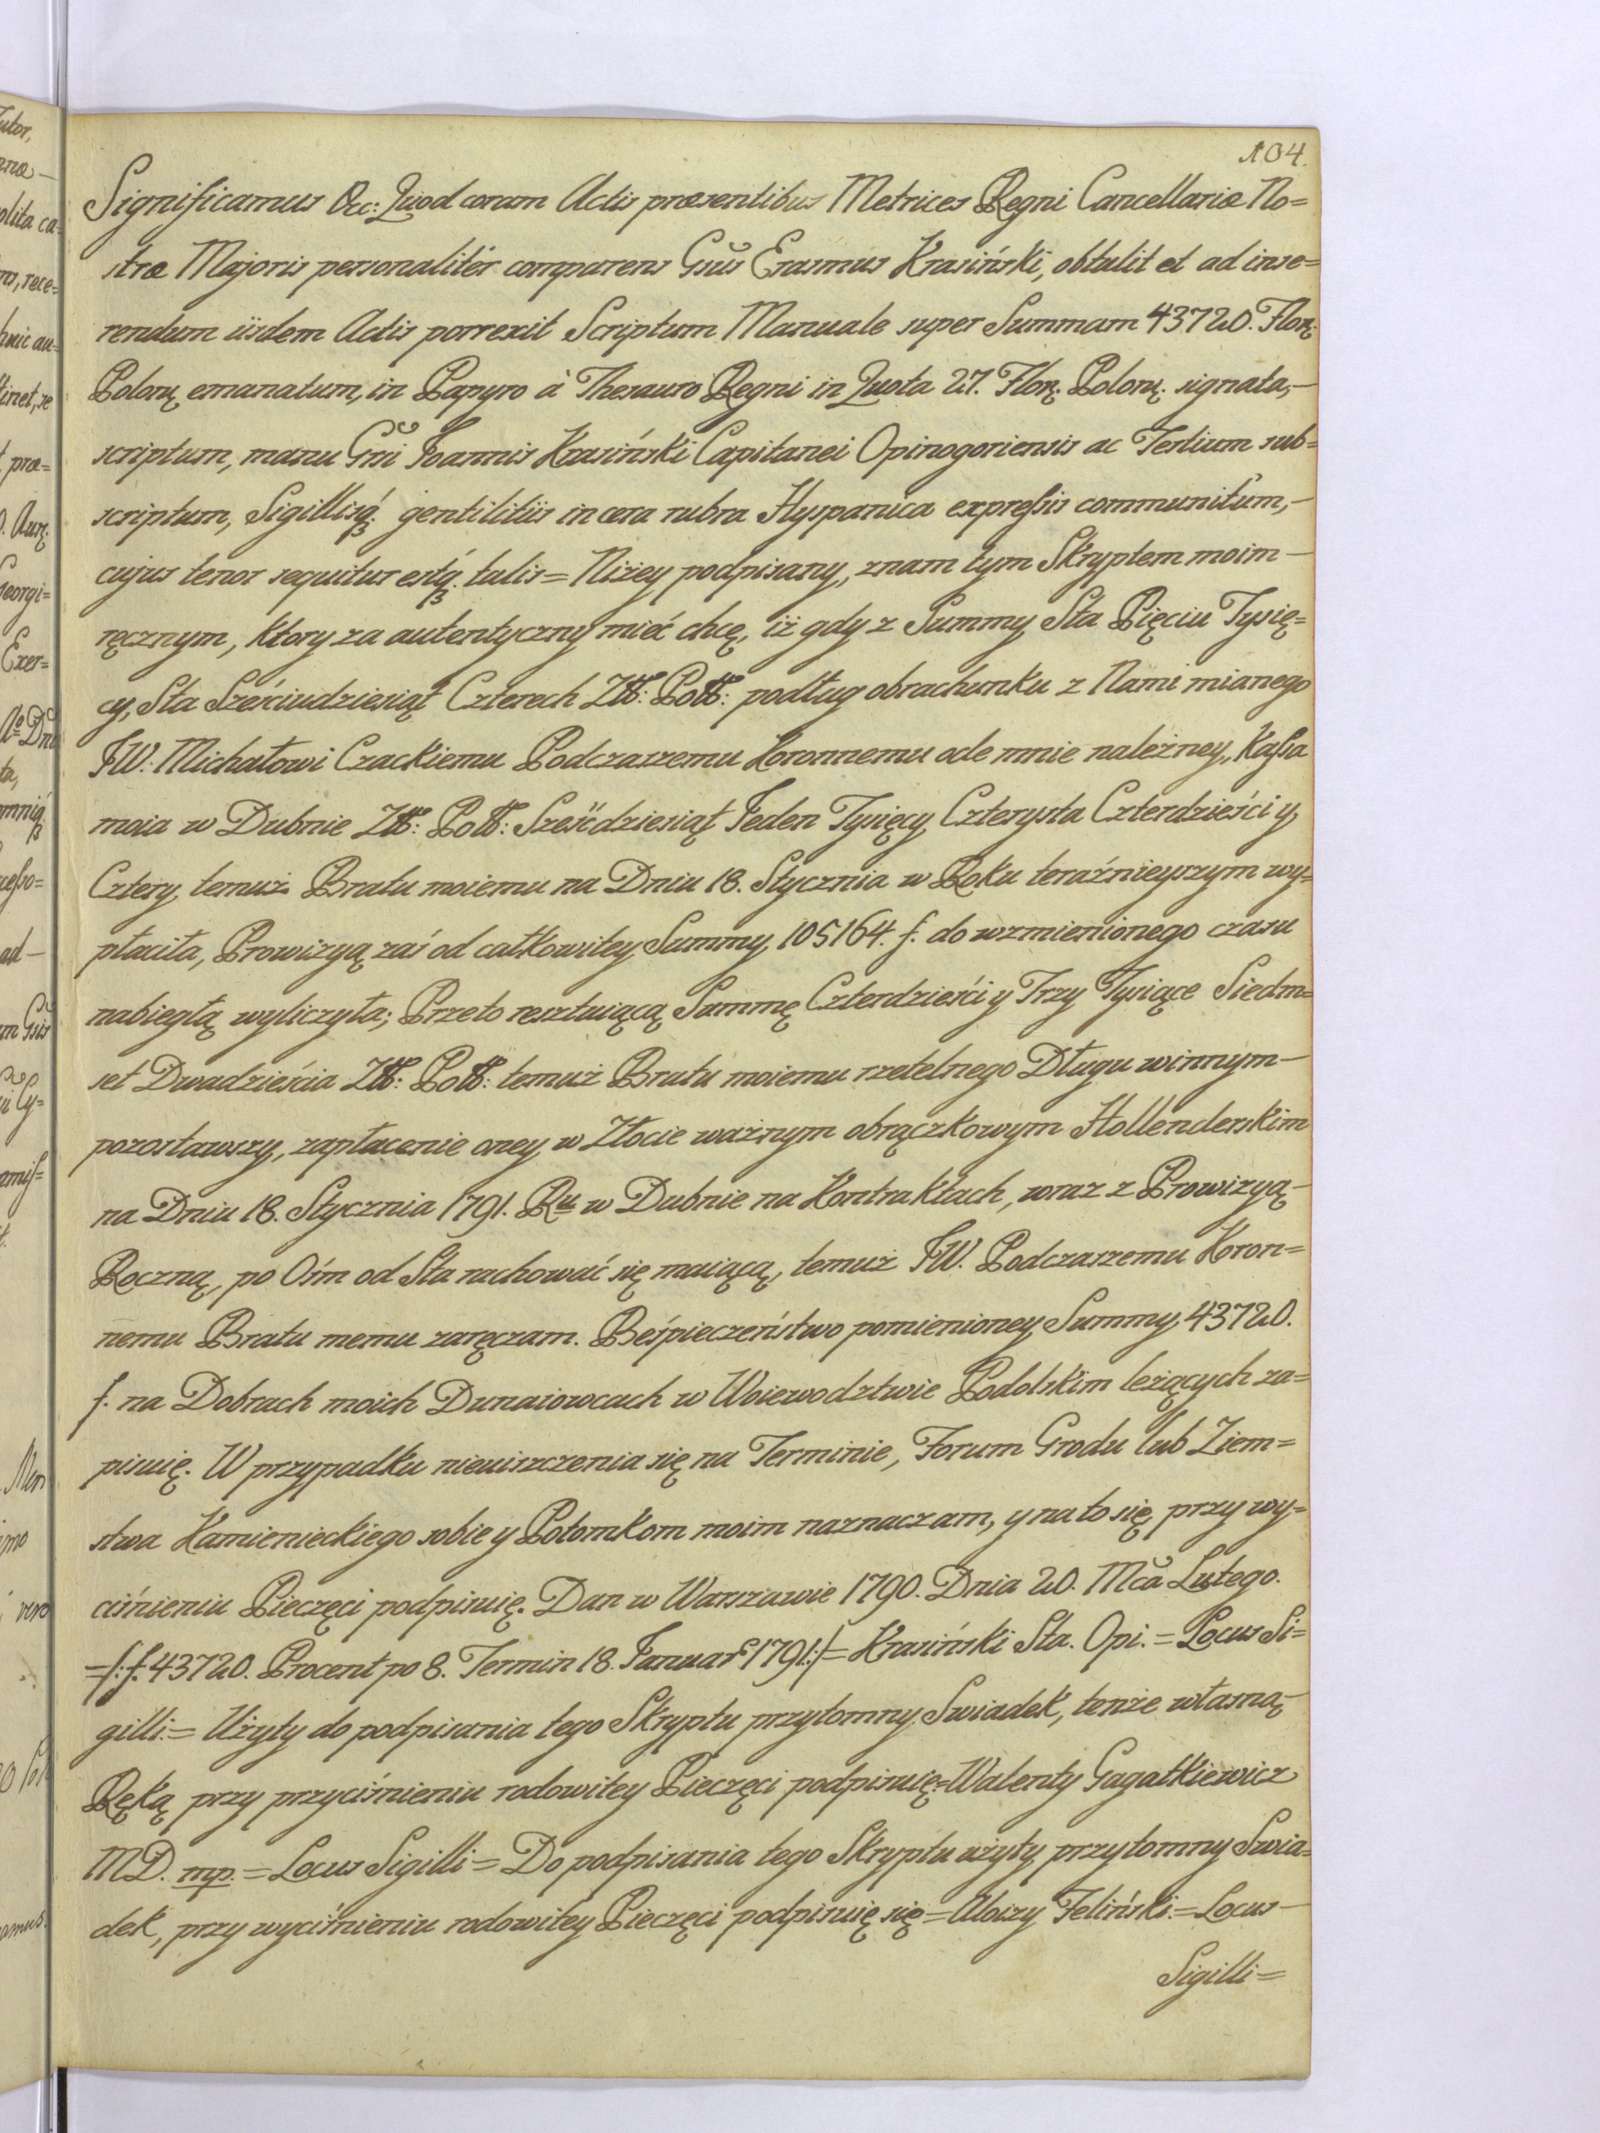 104.
Significamus &c: Quod coram Actis præsentibus Metrices Regni Cancellariæ No=
stræ Majoris personalitèr comparens Gsus Erasmus Krasiński, obtulit et ad inse=
rendum iisdem Actis porrexit Scriptum Manuale super Summam 43720. Flor:
Polon: emanatum, in Papyro à Thesauro Regni in Quota 27. Flor: Polon: signata,—
scriptum, manu Gsi Joannis Krasiński Capitanei Opinogoriensis ac Testium sub=
scriptum, Sigillisq; gentilitiis in cera rubra Hyspanica expressis communitum,—
cujus tenor sequitur estq; talis = Niżey podpisany, znam tym Skryptem moim—
ręcznym, ktory za autentyczny mieć chcę, iż gdy z Summy Sta Pięciu Tysię=
cy, Sta Sześciudziesiąt Czterech Złł: Poll: podług obrachunku z Nami mianego
JW. Michałowi Czackiemu Podczaszemu Koronnemu ode mnie należney, Kassa
moia w Dubnie Złł: Poll: Sześćdziesiąt Jeden Tysięcy Czterysta Czterdzieści y
Cztery, temuż Bratu moiemu na Dniu 18. Stycznia w Roku teraźnieyszym wy=
płaciła, Prowizyą zaś od całkowitey Summy 105164. f. do wzmienionego czasu
nabiegłą wyliczyła; Przeto resztuiącą Summę Czterdzieści y Trzy Tysiące Siedm=
set Dwadzieścia Złł: Poll: temuż Bratu moiemu rzetelnego Długu winnym—
pozostawszy, zapłacenie oney w Złocie ważnym obrączkowym Hollenderskim
na Dniu 18. Stycznia 1791. Ru w Dubnie na Kontraktach, wraz z Prowizyą—
Roczną, po Ośm od Sta rachować się maiącą, temuż JW. Podczaszemu Koron=
nemu Bratu memu zaręczam. Beśpieczeństwo pomienioney Summy 43720.
f. na Dobrach moich Dunaiowcach w Woiewodztwie Podolskim leżących za=
pisuię. W przypadku nieuiszczenia się na Terminie, Forum Grodu lub Ziem=
stwa Kamienieckiego sobie y Potomkom moim naznaczam, y na to się przy wy=
ciśnieniu Pieczęci podpisuię. Dan w Warszawie 1790. Dnia 20. Mca Lutego.
=/: f. 43720. Procent po 8. Termin 18. Januar 1791:/= Krasiński Sta. Opi. = Locus Si=
gilli = Użyty do podpisania tego Skryptu przytomny Swiadek, tenże własną—
Ręką przy przyciśnieniu rodowitey Pieczęci podpisuię = Walenty Gagatkiewicz
MD. mp. = Locus Sigilli = Do podpisania tego Skryptu użyty przytomny Swia=
dek, przy wyciśnieniu rodowitey Pieczęci podpisuię się = Aloizy Feliński = Locus—
Sigilli =